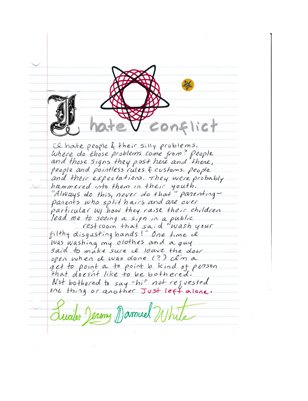 I
hate conflict
I hate people & their silly problems.
Where do those problems come from? people
and those signs they post here and there,
people and pointless rules & customs. people
and their expectations. They were probably
hammered into them in their youth.
"Always do this, never do that" parenting-
parents who split hairs and are over
particular w/ how they raise their children
lead me to seeing a sign in a public
restroom that said "wash your
filthy disgusting hands!" One time I
was washing my clothes and a guy
said to make sure I leave the door
open when I was done (?) I'm a
get to point a to point b kind of person
that doesn't like to be bothered.
Not bothered to say "hi" not requested
one thing or another Just left alone.
Jeremy Damuel White